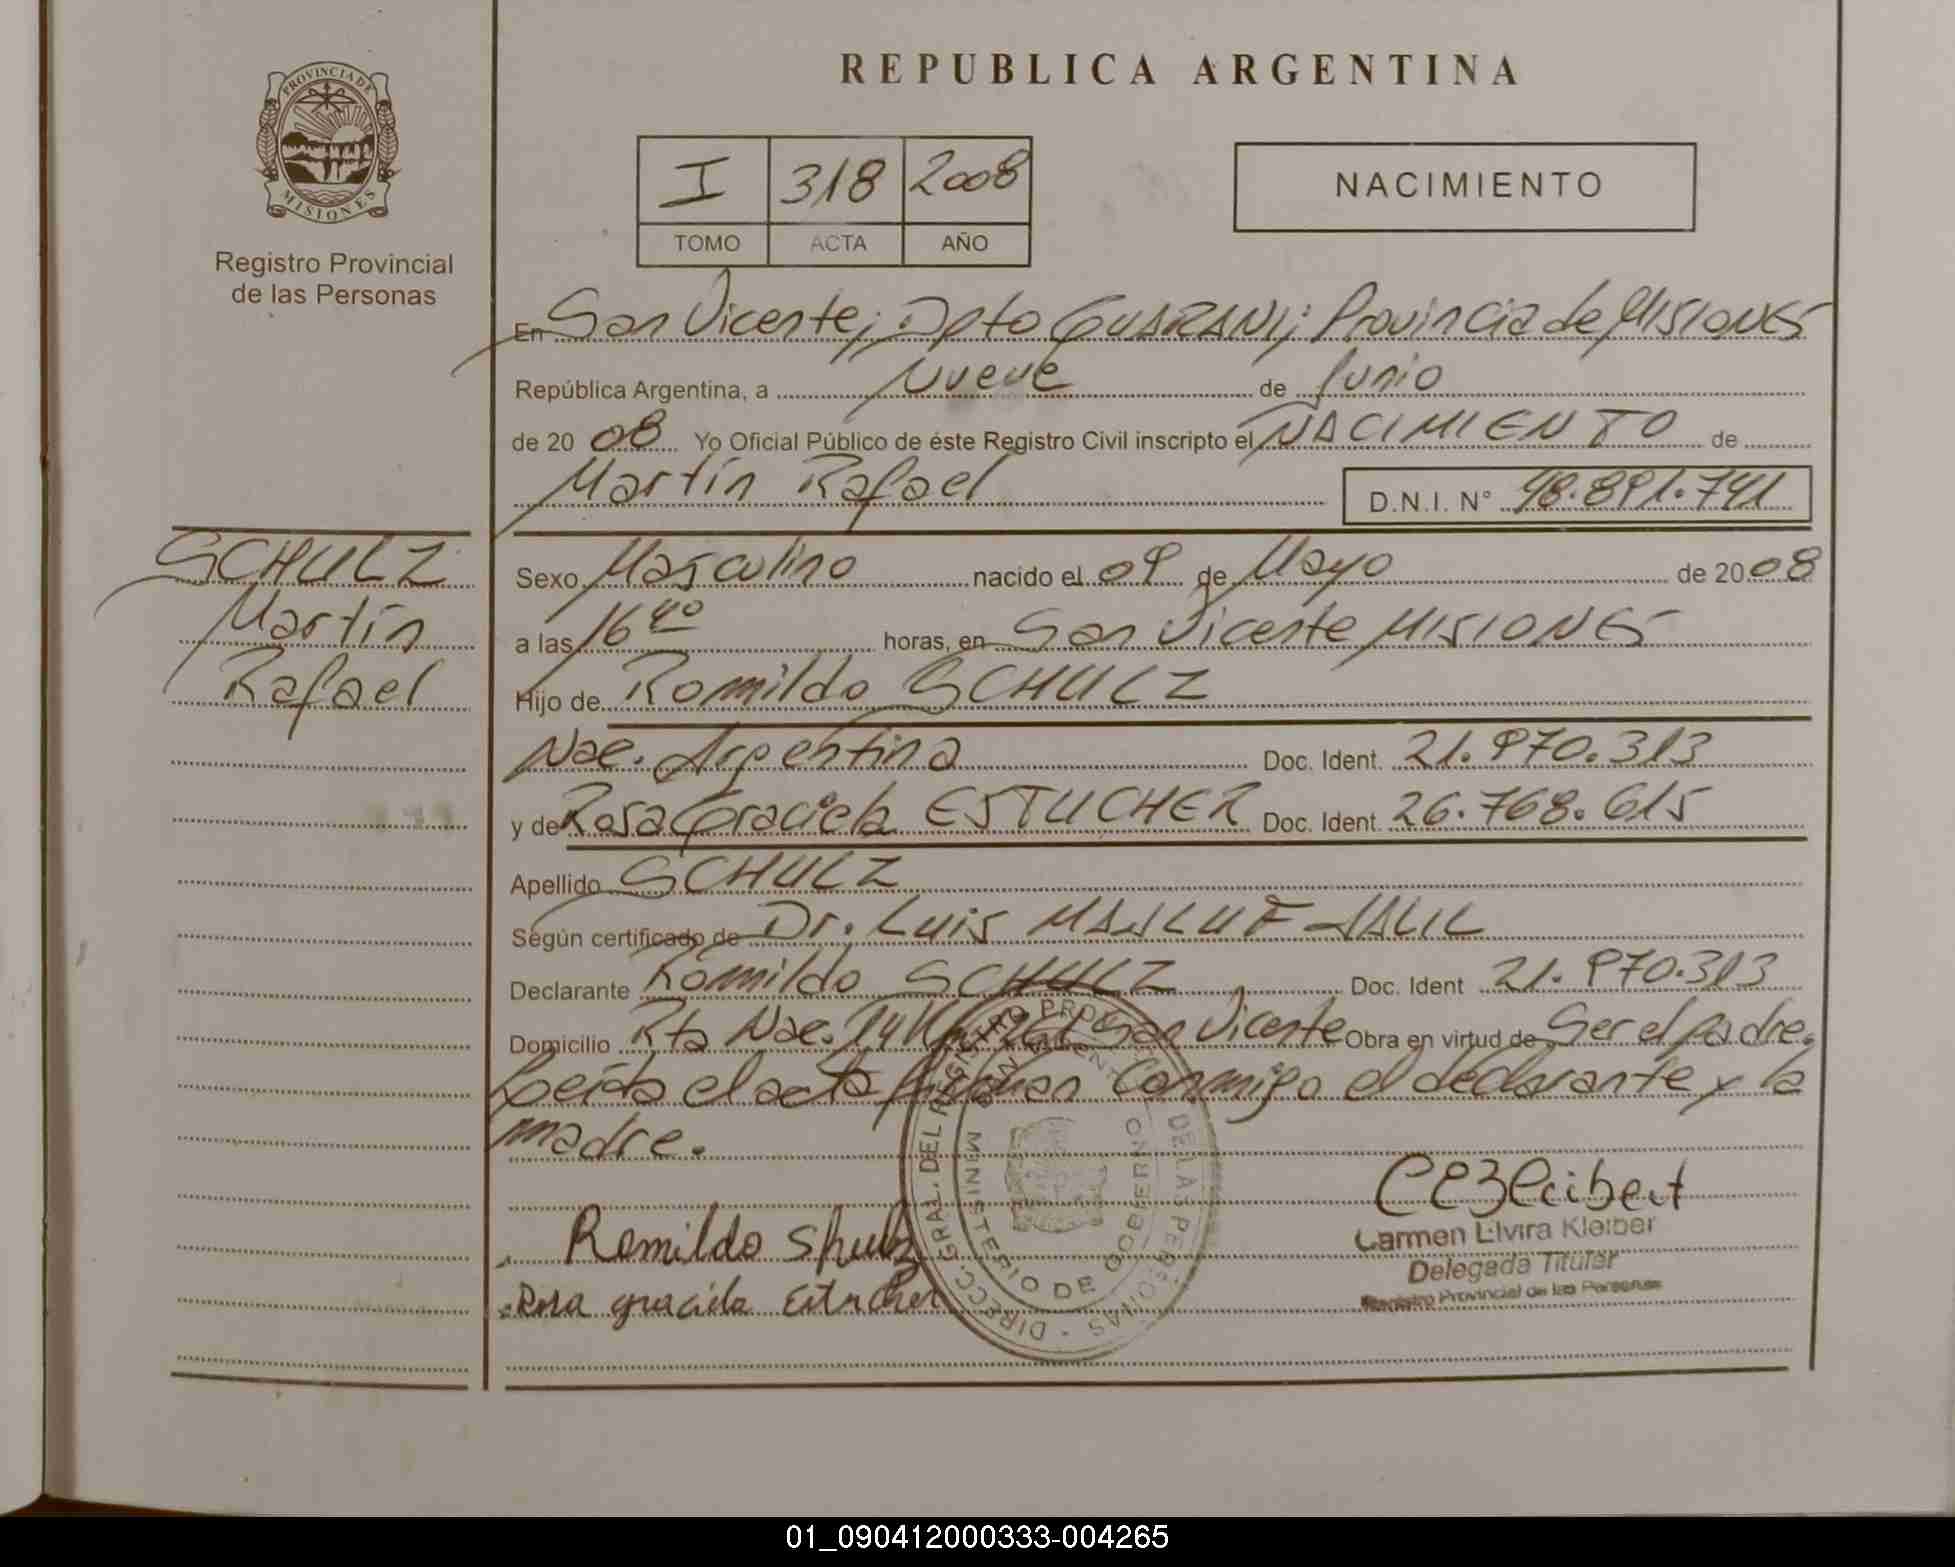 REPUBLICA ARGENTINA
PROVINCIA DE MISIONES
Registro Provincial
de las Personas
I 318 2008
TOMO ACTA AÑO
NACIMIENTO
En San Vicente; Dpto GUARANI; Provincia de MISIONES
República Argentina, a Nueve de Junio
de 2008 Yo Oficial Público de éste Registro Civil inscripto el NACIMIENTO de
Martín Rafael D.N.I. N° 48.891.741
SCHULZ
Martín
Rafael
Sexo Masculino nacido el 09 de Mayo de 2008
a las 16 40 horas, en San Vicente MISIONES
Hijo de Romildo SCHULZ
Nac. Argentina Doc. Ident. 21.970.313
y de Rosa Graciela ESTUCHER Doc. Ident. 26.768.615
Apellido SCHULZ
Según certificado de Dr. Luis JALIL
Declarante Romildo SCHULZ Doc. Ident 21.970.313
Domicilio Rta Nac. 14 San Vicente Obra en virtud de Ser el padre.
Leída el acta firman conmigo el declarante y la
madre.
Romildo Shulz
Rosa graciela Estucher
DIRECC. GRAL. DEL REGISTRO PROVINCIAL DE LAS PERSONAS
MINISTERIO DE GOBIERNO
SAN VICENTE
Carmen Elvira Kleiber
Delegada Titular
Registro Provincial de las Personas
01_090412000333-004265